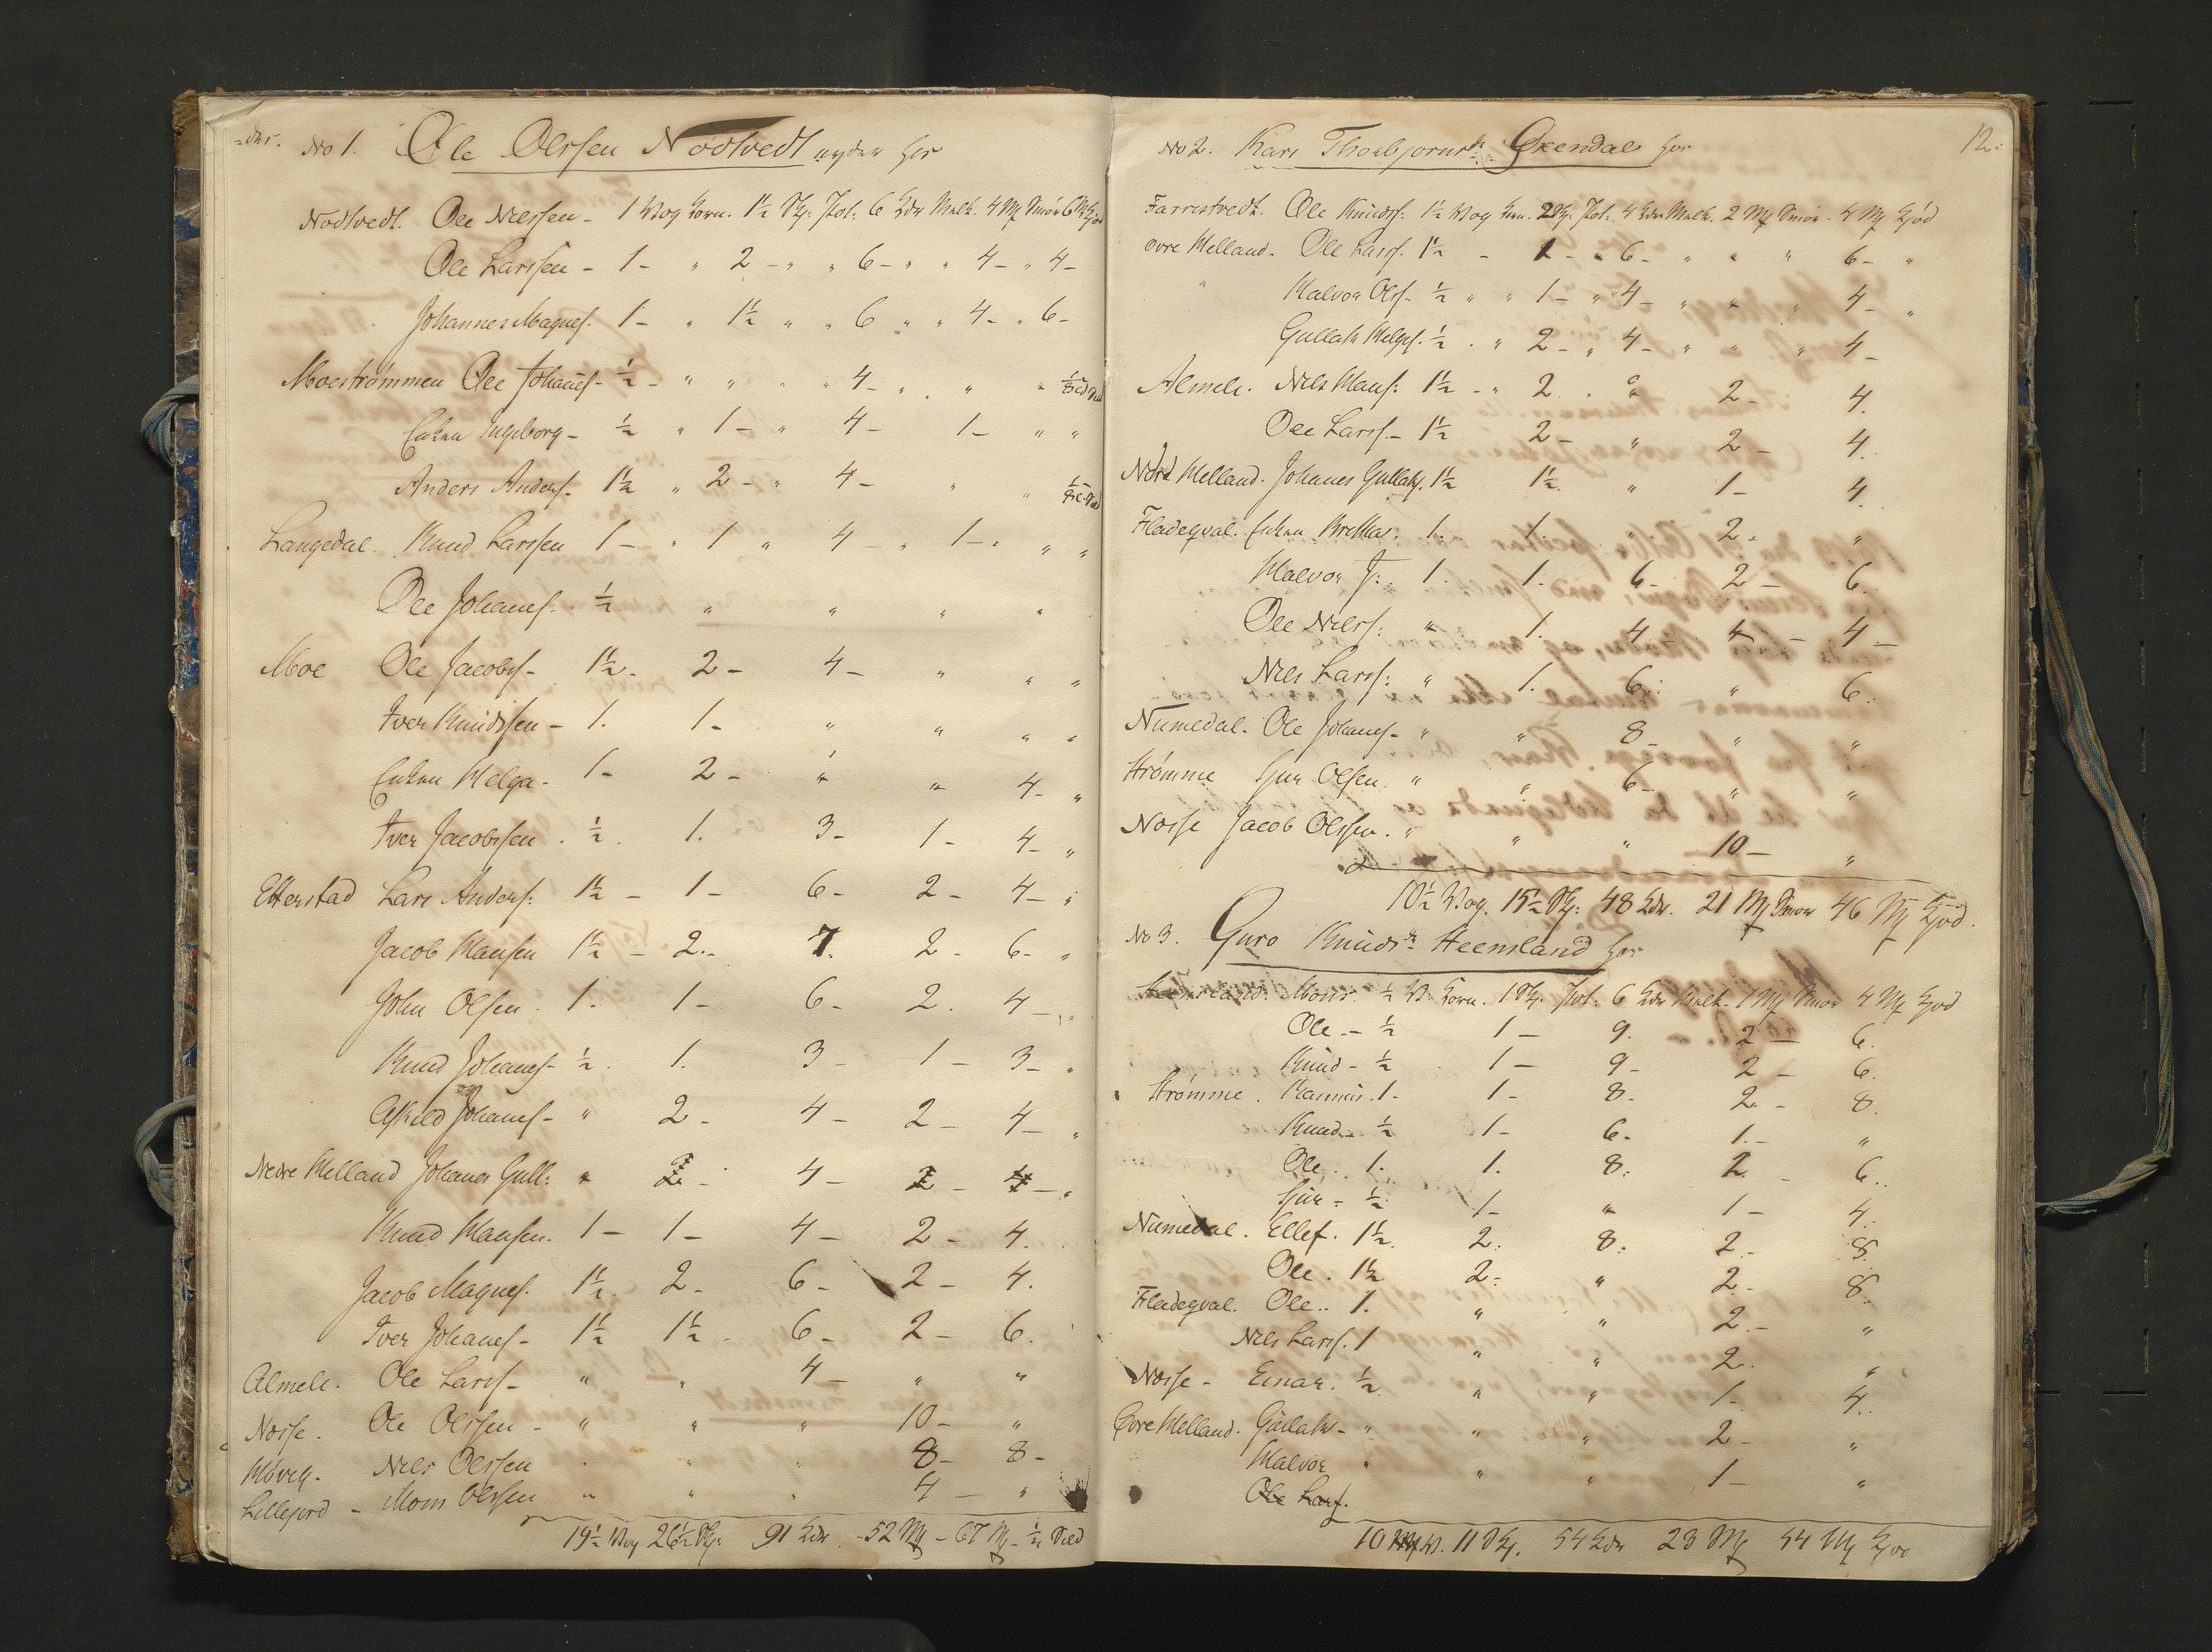 =der. No 1. Ole Olssen Nodtvedt nyder her
Nodtvedt. Ole Nielssen - 1 Vog Korn. 1½ Skp: Pot: 6 Kdr Melk. 4 Mk Smør 6 Mk Kjød
Ole Larssen - 1 - " 2 - " " 6 - " " 4 - " 4 -
Johannes Magnes. 1 - " 1½ " " 6 " " 4 - " 6 -
Moestrømmen Ole Johanes - ½ - " " " " 4 - " " "
Enken Ingeborg - ½ " 1 - " 4 - 1 - " "
Anders Anders. 1½ " 2 - " 4 - " "
Langedal. Knud Larssen 1 - " 1 " 4 - " 1 - " " "
Ole Johanes. ½ " " " "
Moe Ole Jacobs - 1½ - 2 - 4 - " " "
Iver Knudssen - 1. 1 - " " " "
Enken Helga - 1 - 2 - " " 4 - "
Iver Jacobssen . ½ . 1. 3 - 1 - 4 - "
Etterstad Lars Anders: 1½ - 1 - 6 - 2 - 4 - "
Jacob Hansen 1½ - 2 - 7. 2 - 6 - "
John Olsen . 1. 1 - 6 - 2. 4 - "
Knud Johanes - ½ . 1. 3 - 1 - 3 - "
Askild Johanes - " 2 - 4 - 2 - 4 - "
Nedre Helland Johanes Gull: " 2 - 4 - 2 - 4 - "
Knud Hansen. 1 - 1 - 4 - 2 - 4.
Jacob Magnes. 1½. 2 - 6 - 2 - 4.
Iver Johanes - 1½ 1½ - 6 - 2 - 6.
Almeli. Ole Larss - " " 4 - " "
Nosse. Ole Olssen - " " " 10 - "
Nils Olssen " " " 8 - 8 -
Lillejord - Mons Olssen " " " 4 - "
19½ Vog 26½ Skp: 91 Kdr. 52 Mk - 67 Mk -
12.
No 2. Kari Thorbjørnsdr Øxendal her
Farrestvedt. Ole Knuds: 1½ Vog Korn. 2 Skp: Pot: 4 Kdr Melk. 2 Mk Smør. 4 Mk Kjød
øvre Helland - Ole Larss. 1½ - 1 - " 6 - " " " 6 - "
Halvor Olss. ½ " " 1 - " 4 - " " " 4 - "
Gullak Helges. ½ . " 2 - " 4 - " " " 4 -
Almeli. Nils Hans: 1½ - " 2 . " 2 - 4.
Ole Larss - 1½ 2 - " 2 - 4.
Nord Helland. Johanes Gullaks. 1½ 1½. " 1 - 4.
Fladeqval. Enken Brettha. 1. 1. " 2 - "
Halvor J: . 1. 1. 6 - 2 - 6.
Ole Nils: " 1. 4 - 4 - 4 -
Nils Larss: " 1. 6. " 6.
Numedal. Ole Johanes - " " 8 - " "
Strømme Sjur Olsen. " " 6 - " "
Nosse Jacob Olssen. " " " 10 - "
10½ Vog. 15½ Skp: 48 Kdr. 21 Mk Smør 46 Mk Kjød.
No 3. Guro Knudsdr Heemland her
Heemland. Mons. ½ V. Korn. 1 Skp. Pot: 6 Kdr Melk. 1 Mk Smør 4 Mk Kjød
Ole - ½ 1 - 9. 2 - 6.
Knud - ½ 1 - 9 - 2 - 6.
Strømme. 1. 1 - 8. 2 - 8.
Knud - ½ 1 - 6 - 1 - "
Ole. 1. 1. 8: 2 - 6.
Sjur - ½ 1 - " 1 - 4.
Numedal. Ellef. 1½. 2: 8: 2 - 8.
Ole. 1½ 2 - " 2 - 8.
Fladeqval. Ole.. 1. " " 2 - "
Nils Larss. 1 " " 2. "
Nosse - Einar. ½. " " 1 - 4.
Øvre Helland. Gullak - " " " 2 - "
Halvor " " " 1 - "
Ole Larss.
10 V. 11 Skp. 54 Kdr 23 Mk 54 Mk Kjød